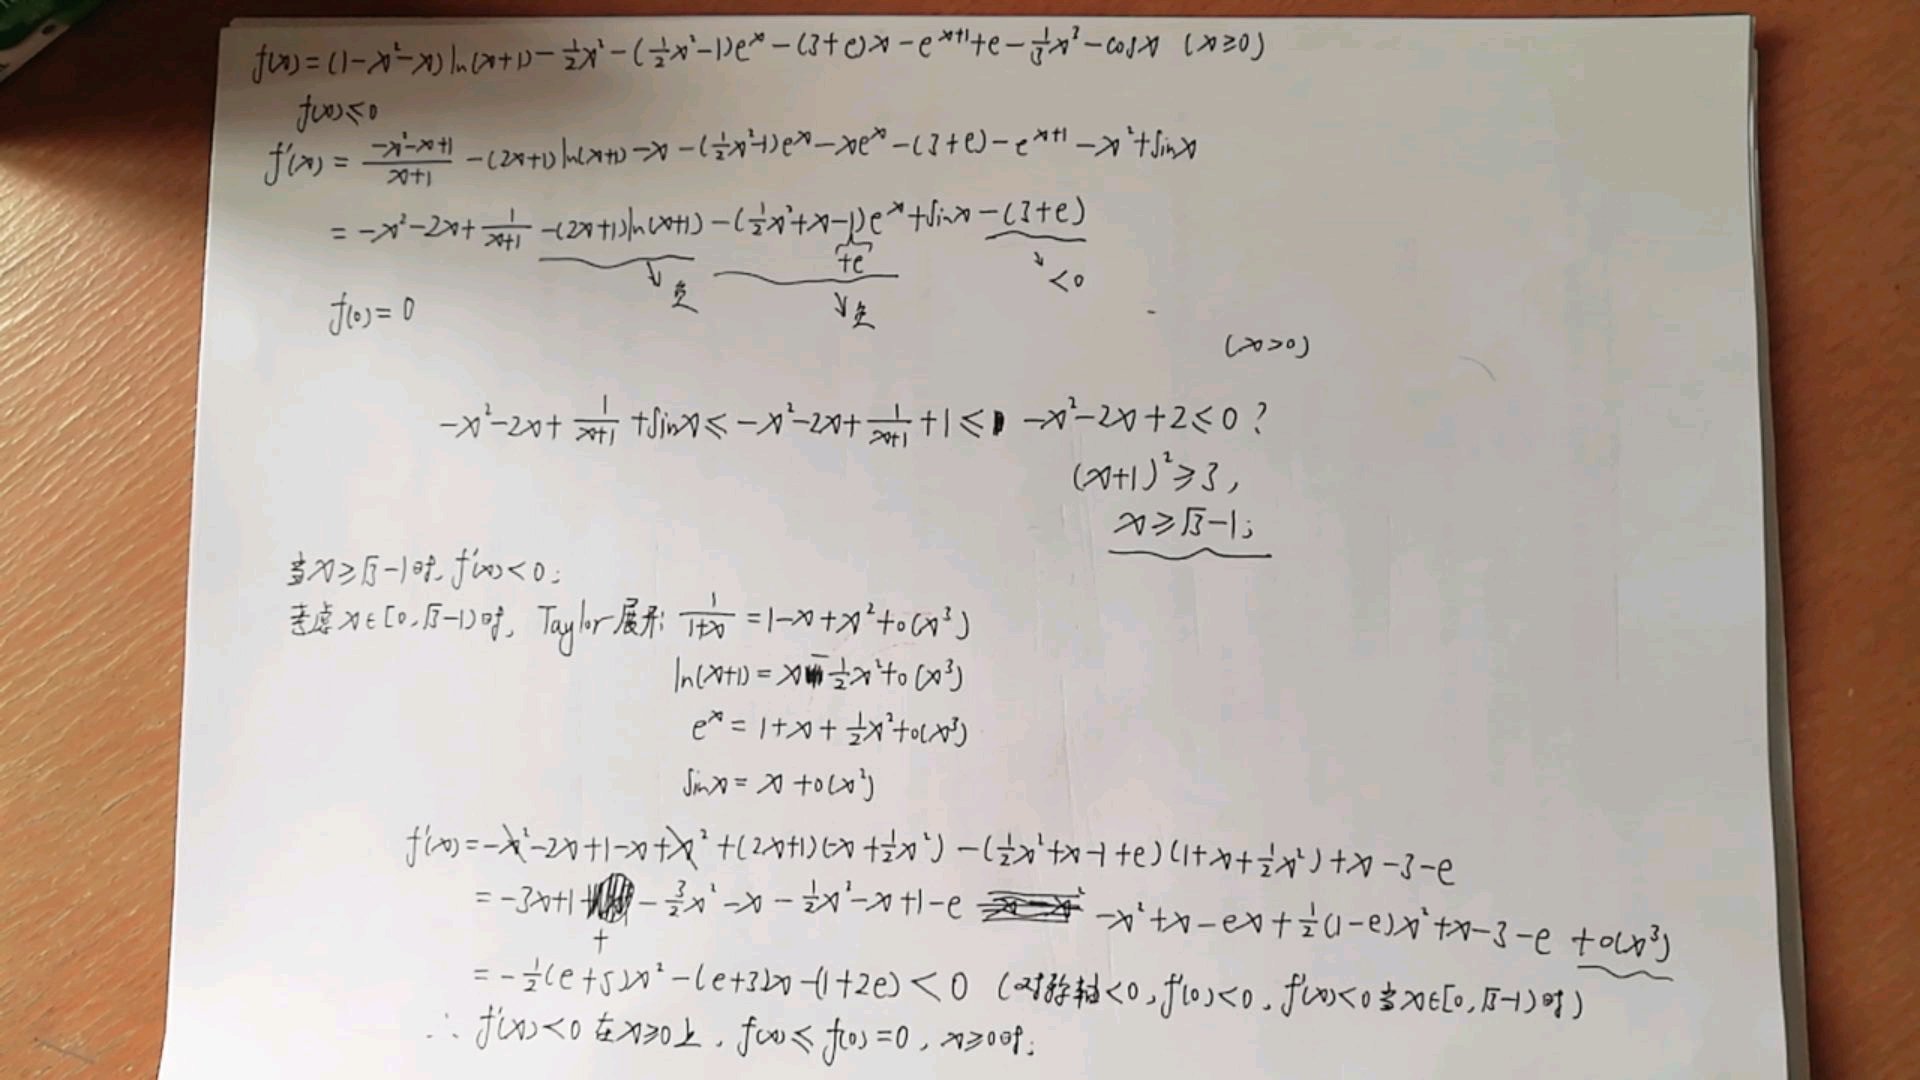 f(x)=(1-x²-x)ln(x+1)-½x²-(½x²-1)eˣ-(3+e)x-eˣ⁺¹+e-⅓x³-cosx (x≥0)
f(x)≤0
f'(x)=(-x²-x+1)/(x+1) -(2x+1)ln(x+1)-x-(½x²-1)eˣ-xeˣ-(3+e)-eˣ⁺¹-x²+sinx
=-x²-2x+1/(x+1) -(2x+1)ln(x+1)-(½x²+x-1)eˣ+sinx-(3+e)
+e
负 负 <0
f(0)=0
(x>0)
-x²-2x+1/(x+1)+sinx≤-x²-2x+1/(x+1)+1≤ -x²-2x+2≤0?
(x+1)²≥3,
x≥√3-1;
当x≥√3-1时,f'(x)<0;
考虑x∈[0,√3-1)时, Taylor展开: 1/(1+x)=1-x+x²+o(x³)
ln(x+1)=x-½x²+o(x³)
eˣ=1+x+½x²+o(x³)
sinx=x+o(x²)
f'(x)=-x²-2x+1-x+x²+(2x+1)(-x+½x²)-(½x²+x-1+e)(1+x+½x²)+x-3-e
=-3x+1 -3/2x²-x-½x²-x+1-e -x²+x-ex+½(1-e)x²+x-3-e+o(x³)
=-½(e+5)x²-(e+3)x-(1+2e)<0 (对称轴<0,f'(0)<0,f'(x)<0当x∈[0,√3-1)时)
∴f'(x)<0在x≥0上,f(x)≤f(0)=0,x≥0时;